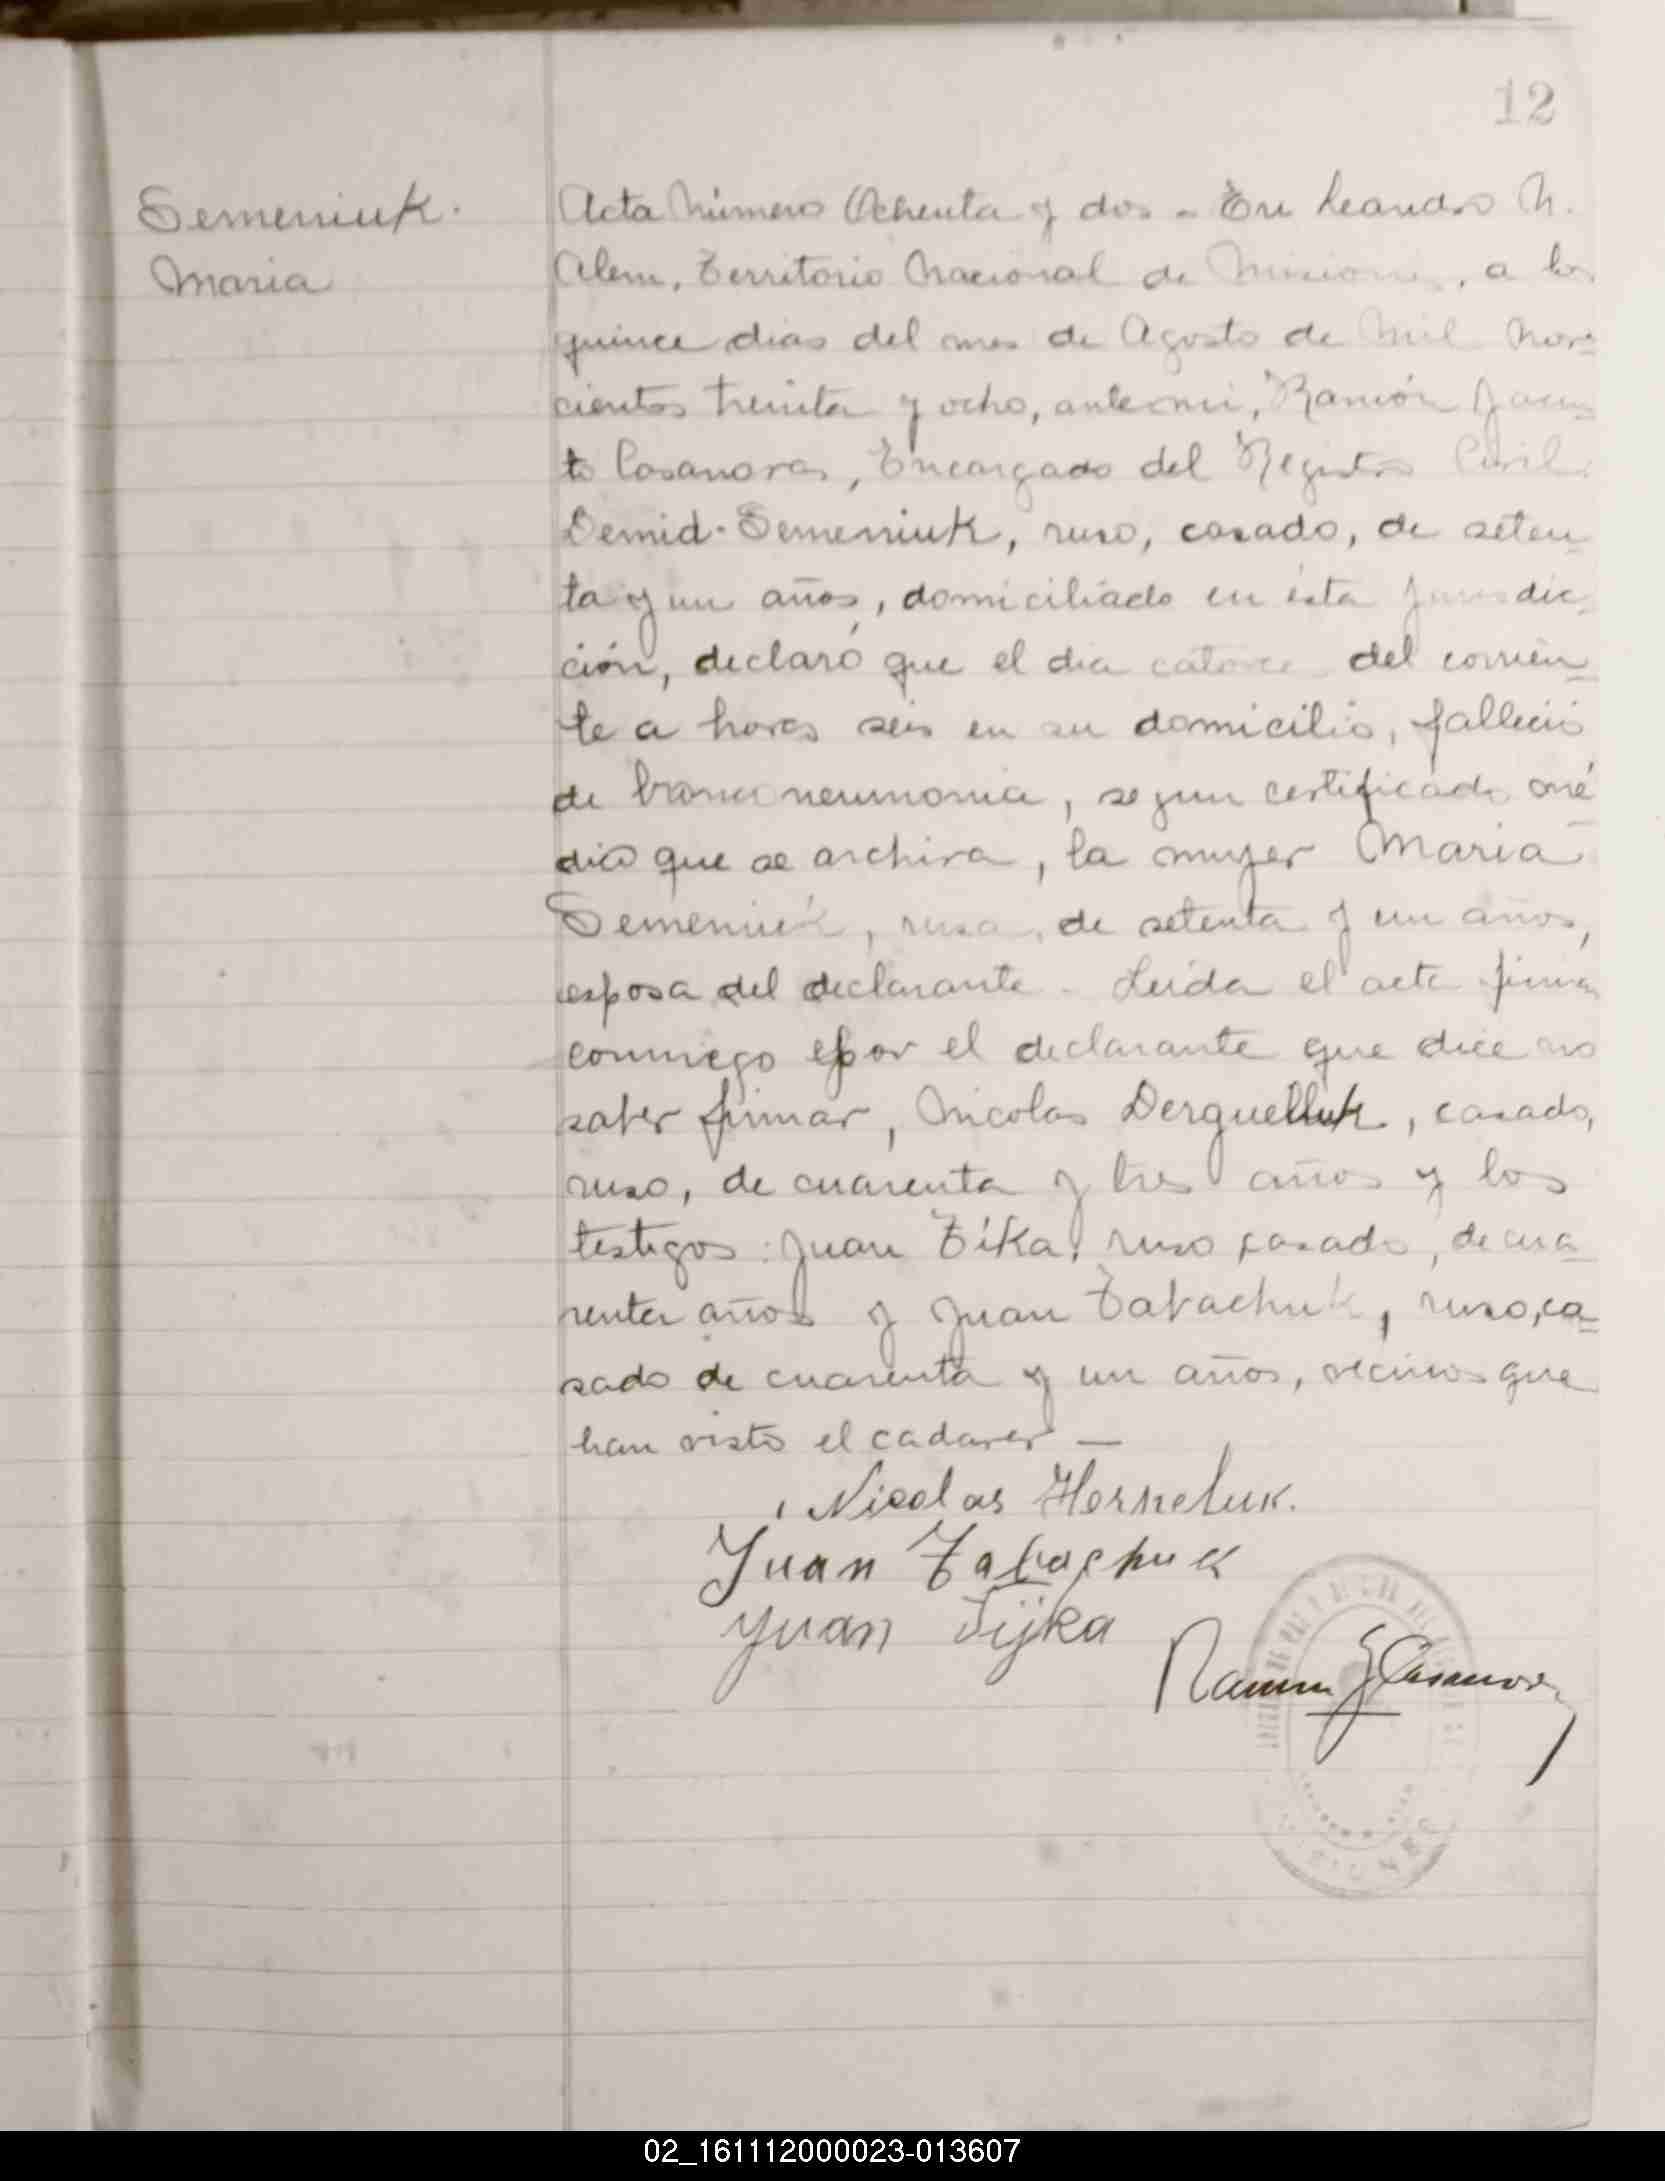 12
Semeniuk.
Maria
Acta Número Ochenta y dos - En Leandro N.
Alem, Territorio Nacional de Misiones, a los
quince dias del mes de Agosto de Mil Nove=
cientos treinta y ocho, ante mi, Ramón Jacin=
to Casanova, Encargado del Registro Civil
Demid Semeniuk, ruso, casado, de seten=
ta y un años, domiciliado en ésta jurisdic=
ción, declaró que el dia catorce del corrien=
te a horas seis en su domicilio, falleció
de bronconeumonia, segun certificado mé=
dico que se archiva, la mujer Maria
Semeniuk, rusa, de setenta y un años,
esposa del declarante - Leída el acta firma
conmigo y por el declarante que dice no
saber firmar, Nicolas Dergueluk, casado,
ruso, de cuarenta y tres años y los
testigos: Juan Tika, ruso, casado, de cua=
renta años y Juan Tabachuk, ruso, ca=
sado de cuarenta y un años, vecinos que
han visto el cadaver —
Nicolas Herneluk.
Juan Tabachuk
Yuan Tijka
Ramon J Casanova
MISIONES
02_161112000023-013607